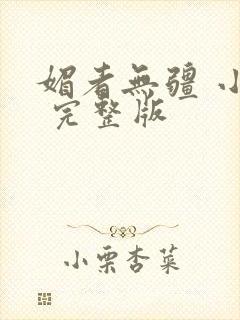 媚者無疆 小
完整版
小栗杏菜